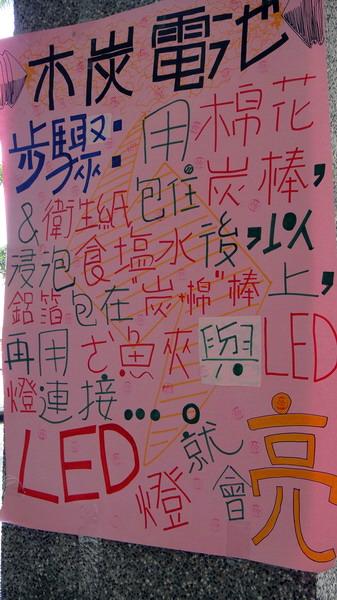 木炭電池
步驟:用棉花
&衛生紙包住炭棒,
浸泡食塩水後,以
鋁箔包在"炭.棉"棒上,
再用ㄜˋ魚夾與LED
燈連接...。
LED燈就會亮